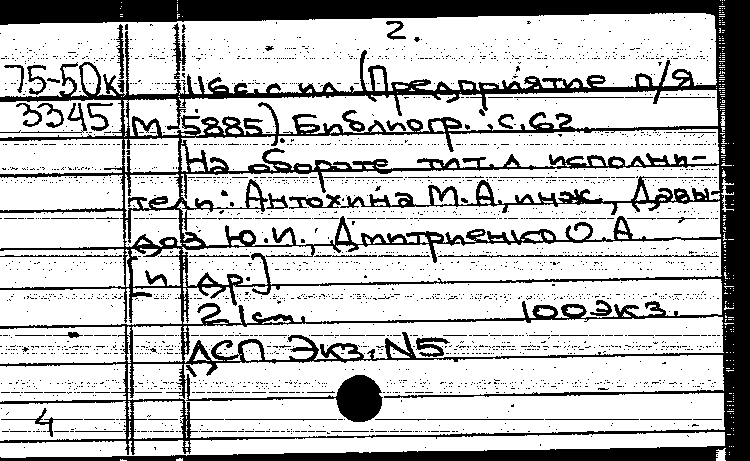 2.
75-50к 116с. с ил. (Предприятие п/я
3345 М-5885). Библиогр.: с.62.
На обороте тит.л. исполни-
тели: Антохина М.А., инж., Давы-
дов Ю.И., Дмитриенко О.А.
[и др.].
21cm. 100экз.
ДСП Экз. N5
4